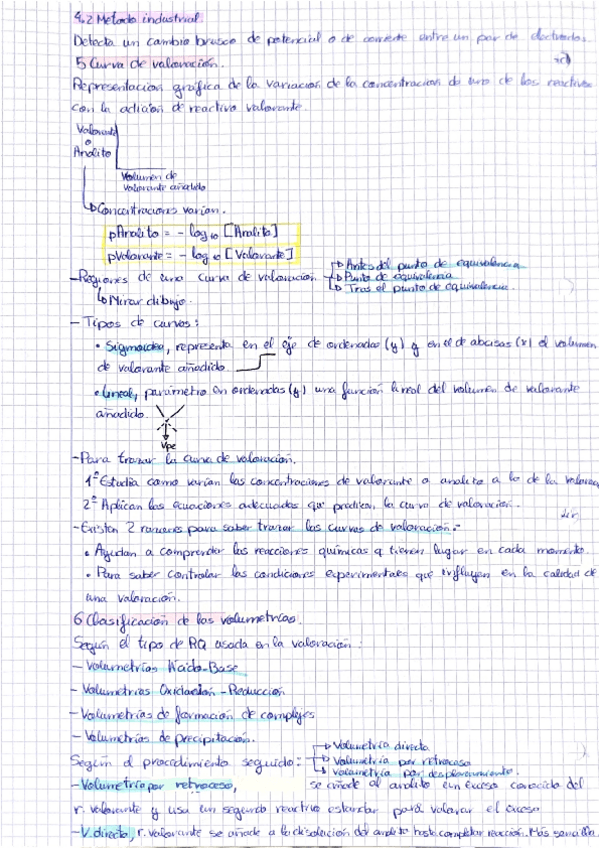 4.2 Metodo industrial
Detecta un cambio brusco de potencial o de corriente entre un par de electrodos.
5 Curva de valoración.
Representación gráfica de la variación de la concentración de uno de los reactivos
con la adición d reactivo valorante.
Valorante
o
Analito
Volumen de
valorante añadido
Concentraciones varían.
pAnalito = - log10 [Analito]
pValorante = - log10 [Valorante]
- Regiones de una curva de valoración
Antes del punto de equivalencia
Punto de equivalencia
Tras el punto de equivalencia.
Mirar dibujo.
- Tipos de curvas:
• Sigmoidea, representa en el eje de ordenadas (y) y en el de abcisas (x) el volumen
de valorante añadido
• Lineal, parámetro en ordenadas (y) una función lineal del volumen de valorante
añadido.
Vpe
- Para trazar la curva de valoración.
1º Estudia como varían las concentraciones de valorante o analito a lo de la valorac
2º Aplican las ecuaciones adecuadas que predicen la curva de valoración.
- Existen 2 razones para saber trazar las curvas de valoración:-
• Ayudan a comprender las reacciones químicas q tienen lugar en cada momento.
• Para saber controlar las condiciones experimentales que influyen en la calidad de
una valoración.
6 Clasificación de las volumetrías.
Según el tipo de RQ usada en la valoración:
- Volumetrías Ácido-Base
- Volumetrías Oxidación - Reducción
- Volumetrías de formación de complejos
- Volumetrías de precipitación.
Según el procedimiento seguido:
Volumetría directa
Volumetría por retroceso
Volumetría por desplazamiento.
- Volumetría por retroceso, se añade al analito un exceso conocido del
r. valorante y usa un segundo reactivo estandar para valorar el exceso
- V. directa, r. valorante se añade a la disolución del analito hasta completar reacción. Más sencilla.